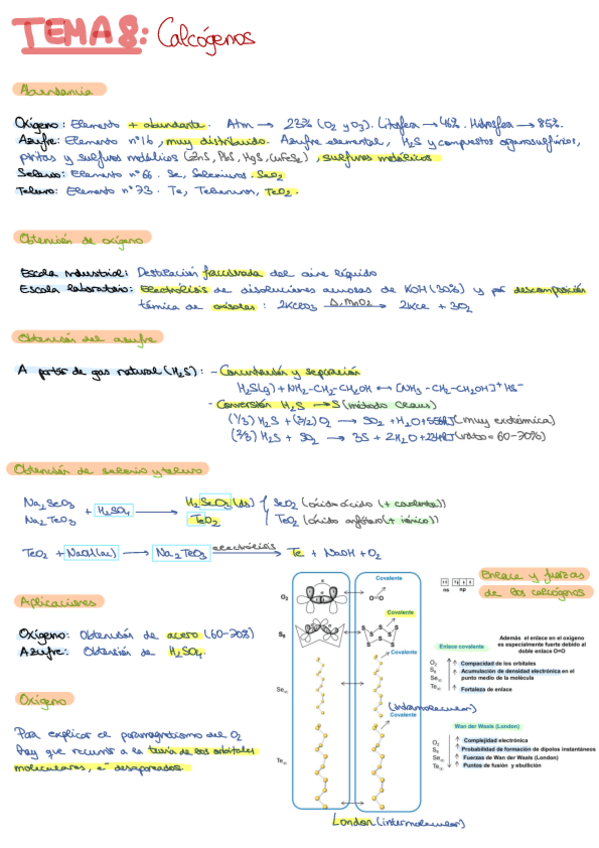 TEMA 8: Calcógenos
Abundancia
Oxígeno: Elemento + abundante. Atm → 23% (O2 y O3). Litosfera → 46%. Hidrosfera → 85%.
Azufre: Elemento nº16, muy distribuido. Azufre elemental, H2S y compuestos organosulfurados,
piritas y sulfuros metálicos (ZnS, PbS, HgS, CuFeS2), sulfuros metálicos
Selenio: Elemento nº 66. Se, Seleniuros. SeO2
Teluro: Elemento nº 73. Te, Telururos, TeO2.
Obtención de oxígeno
Escala industrial: Destilación fraccionada del aire líquido
Escala laboratorio: Electrólisis de disoluciones acuosas de KOH (30%) y por descomposición
térmica de oxisales: 2KClO3 Δ, MnO2 → 2KCl + 3O2
Obtención del azufre
A partir de gas natural (H2S): - Concentración y separación
H2S(g) + NH2-CH2-CH2OH ↔ [NH3-CH2-CH2OH]+ HS-
- Conversión H2S → S (método Claus)
(1/3) H2S + (3/2) O2 → SO2 + H2O + KJ (muy exotérmica)
(2/3) H2S + SO2 → 3S + 2H2O + KJ (rdto = 60-70%)
Obtención de selenio y teluro
Na2SeO3
Na2TeO3
+ H2SO4 →
H2SeO3 (ds)
TeO2
SeO2 (óxido ácido (+ covalente))
TeO2 (óxido anfótero (+ iónico))
TeO2 + NaOH(ac) → Na2TeO3 electrólisis → Te + NaOH + O2
Aplicaciones
Oxígeno: Obtención de acero (60-70%)
Azufre: Obtención de H2SO4.
Oxígeno
Para explicar el paramagnetismo del O2
hay que recurrir a la teoría de los orbitales
moleculares, e- desapareados.
Enlace y fuerzas
de los calcógenos
Covalente
O2
O=O
Covalente
S8
Covalente
Se∞
(intramolecular)
Covalente
Te∞
London (intermolecular)
ns np
Además el enlace en el oxígeno
es especialmente fuerte debido al
doble enlace O=O
Enlace covalente
O2
S8
Se∞
Te∞
↑ Compacidad de los orbitales
↑ Acumulación de densidad electrónica en el
punto medio de la molécula
↑ Fortaleza de enlace
Van der Waals (London)
O2
S8
Se∞
Te∞
↑ Complejidad electrónica
↑ Probabilidad de formación de dipolos instantáneos
↑ Fuerzas de Van der Waals (London)
↑ Puntos de fusión y ebullición